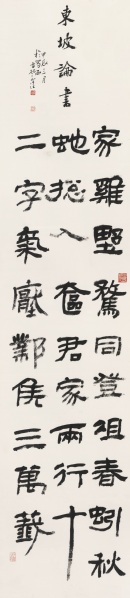 東坡論書
家雞野鶩同登俎春蚓秋
虵總入奩君家兩行十
二字氣壓鄴侯三萬籤